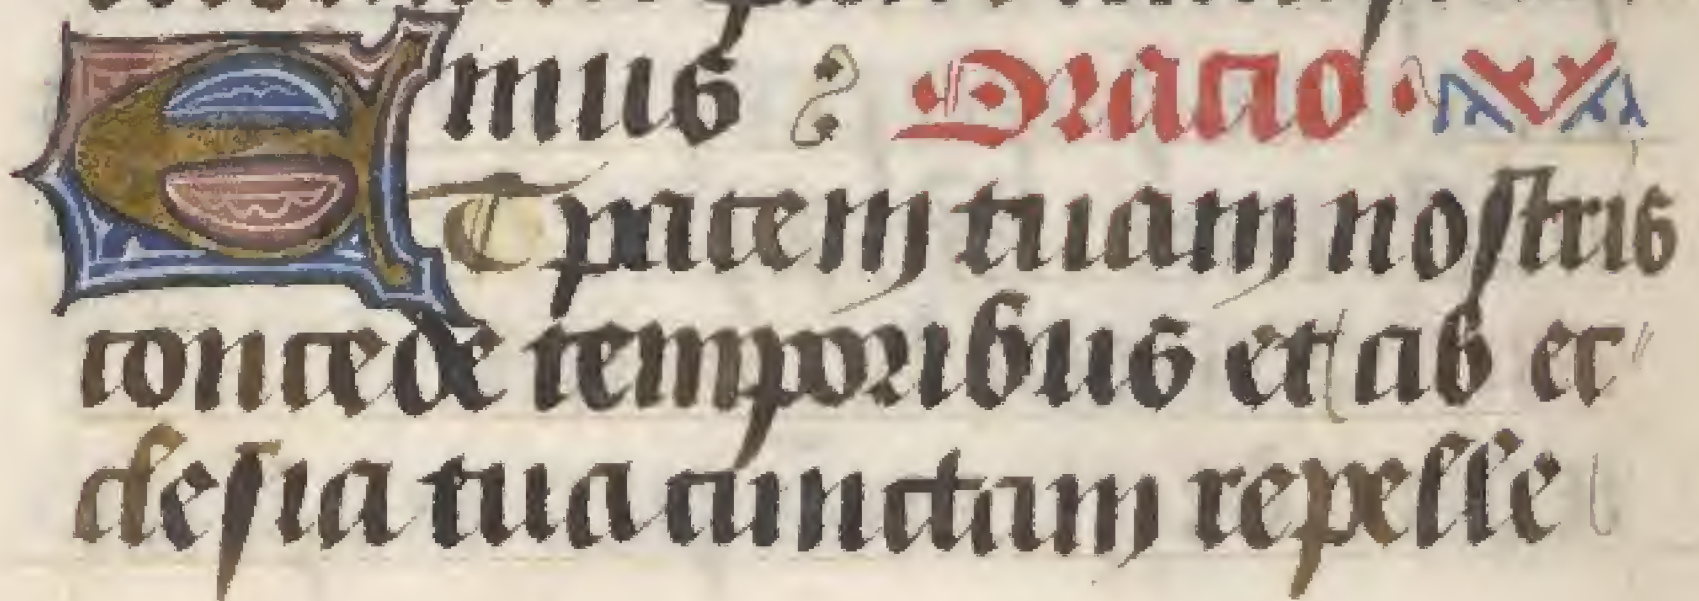 mus : Oratio
Et pacem tuam nostris
concede temporibus et ab ec
clesia tua cunctam repelle